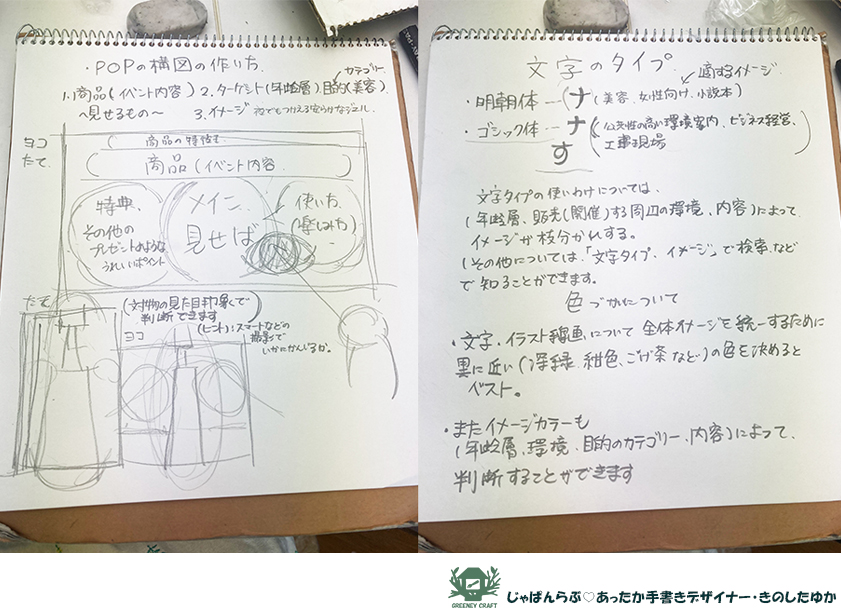 ・POPの構図の作り方.
カテゴリー
1.商品(イベント内容) 2.ターゲット(年齢層). 目的(美容)
〜見せるもの〜 3.イメージ 夜でもつかえる安らかなジェル.
ヨコ
たて.
商品の特徴を
商品(イベント内容
特典、
その他の
プレゼントのような
うれしいポイント
メイン
見せば
使い方.
(楽しみ方)
たて
(対物の見た目印象で
判断できます)
(ヒント):スマートなどの
撮影で
いかにかんじるか。
ヨコ
文字のタイプ.
適するイメージ
・明朝体--(ナ(美容、女性向け.小説本)
・ゴシック体--ナ(公共性の高い環境案内、ビジネス経営、
工事現場)
す
文字タイプの使いわけについては、
(年齢層、販売(開催)する周辺の環境、内容)によって
イメージが枝分かれする。
(その他については、「文字タイプ.イメージ」で検索などで
知ることができます。
色づかいについて
・文字.イラスト線画について 全体イメージを統一するために
黒に近い(深緑.紺色、こげ茶など)の色を決めると
ベスト。
・またイメージカラーも
(年齢層、環境、目的のカテゴリー、内容)によって、
判断することができます
GREENEY CRAFT
じゃぱんらぶ♡あったか手書きデザイナー・きのしたゆか